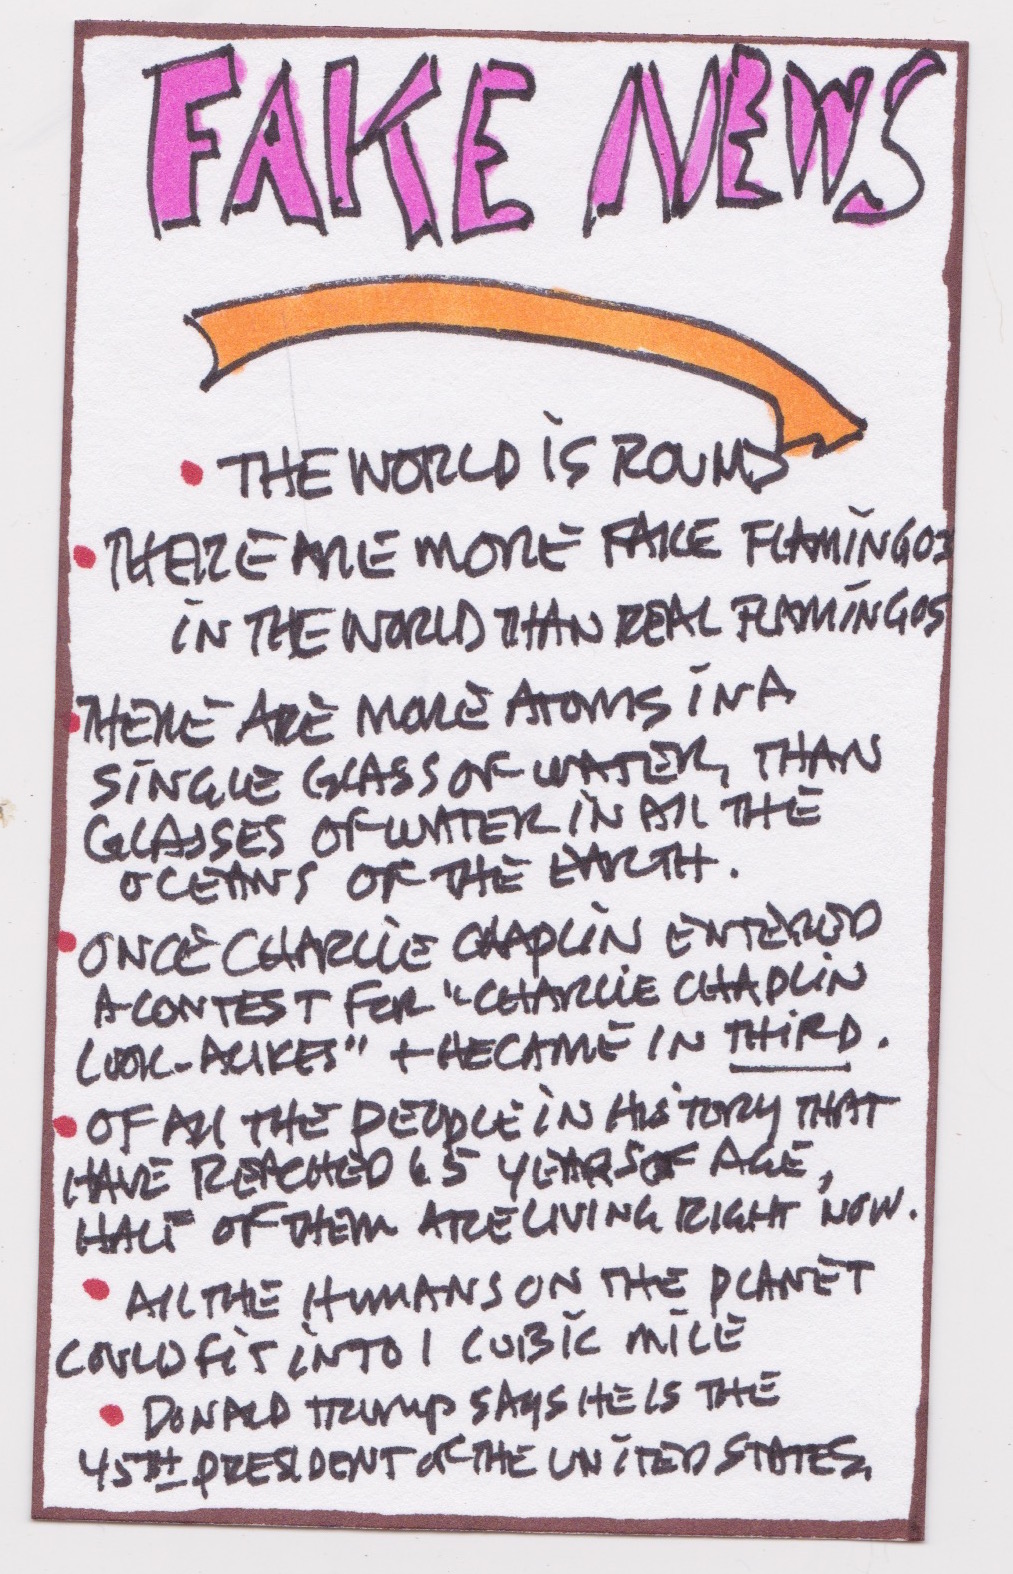 FAKE NEWS
• THE WORLD IS ROUND
• THERE ARE MORE FAKE FLAMINGOS
IN THE WORLD THAN REAL FLAMINGOS
• THERE ARE MORE ATOMS IN A
SINGLE GLASS OF WATER, THAN
GLASSES OF WATER IN ALL THE
OCEANS OF THE EARTH.
• ONCE CHARLIE CHAPLIN ENTERED
A CONTEST FOR "CHARLIE CHAPLIN
LOOK-ALIKES" + HE CAME IN THIRD.
• OF ALL THE PEOPLE IN HISTORY THAT
HAVE REACHED 65 YEARS OF AGE,
HALF OF THEM ARE LIVING RIGHT NOW.
• ALL THE HUMANS ON THE PLANET
COULD FIT INTO 1 CUBIC MILE
• DONALD TRUMP SAYS HE IS THE
45TH PRESIDENT OF THE UNITED STATES.